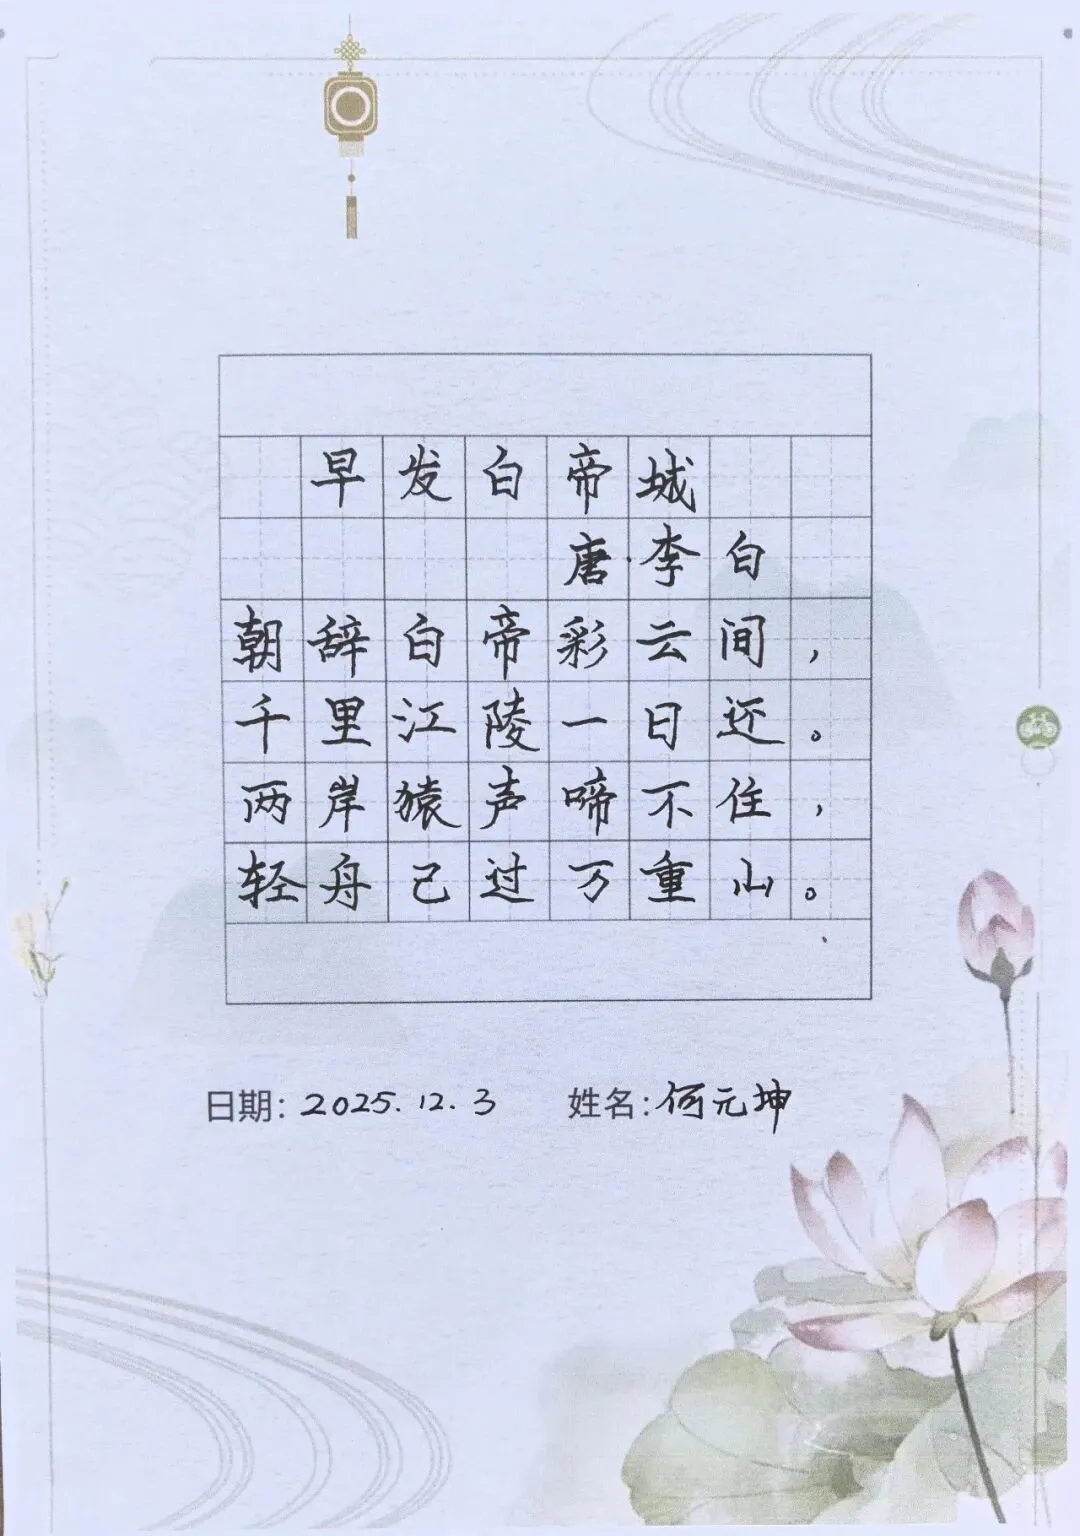 早发白帝城
唐·李白
朝辞白帝彩云间，
千里江陵一日还。
两岸猿声啼不住，
轻舟己过万重山。
日期：2025.12.3 姓名：何元坤